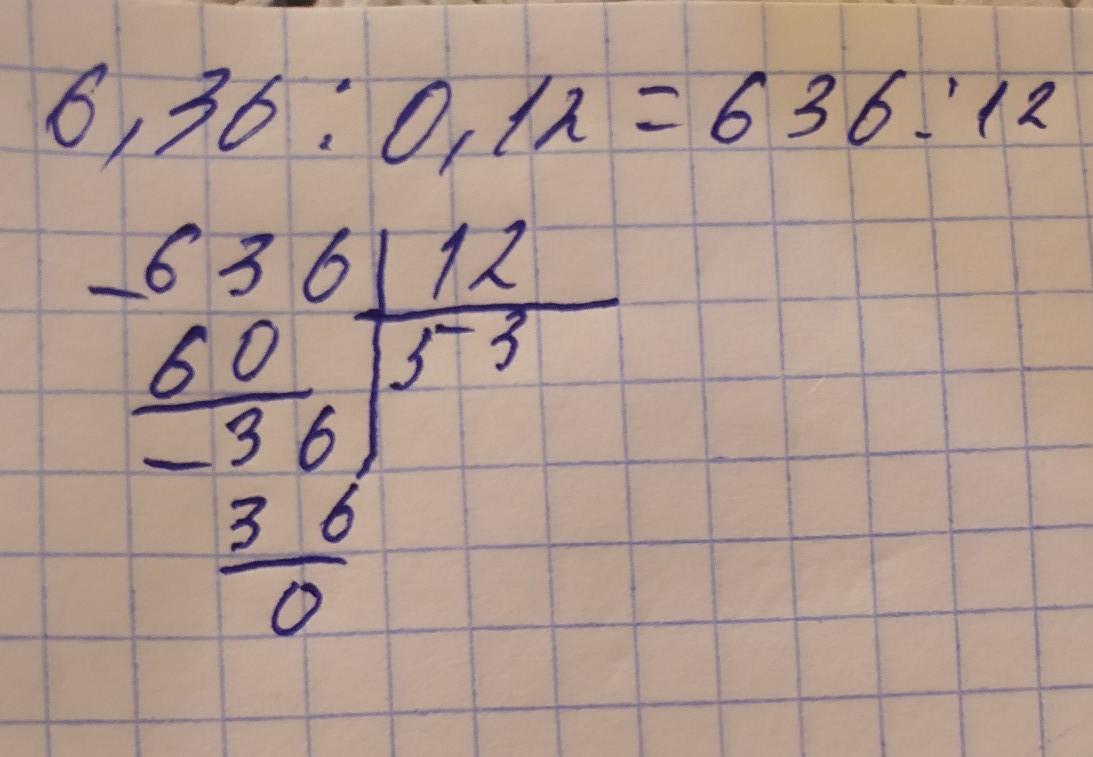 6,36 : 0,12 = 636 : 12
- 636 | 12
60 | 53
- 36
36
0